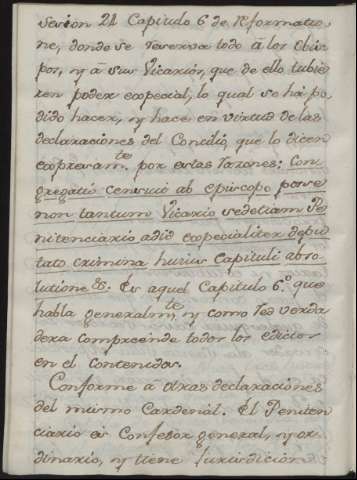 Sesion 24 Capitulo 6 de Reformatio-
ne, donde se reserva todo â los Obis-
pos, y â sus Vicarios, que de ello tubie-
ren poder especial, lo qual se há po-
dido hacer, ny hace en virtud de las
declaraciones del Concilio, que lo dicen
expresam.te por estas razones: Con-
gregatio censuit ab episcopo posse
non tantum Vicario sed etiam Pe-
nitenciario adid especialiter depu-
tato crimina huius Capituli abso-
lutione &. Es aquel Capitulo 6.º que
habla generalm.te, ny como Tes verda-
dera comprende todos los edictos
en el contenidos.
Conforme â otras declaraciones
del mismo Cardenal. El Peniten-
ciario es Confesor general, ny or-
dinario, ny tiene Jurisdicion